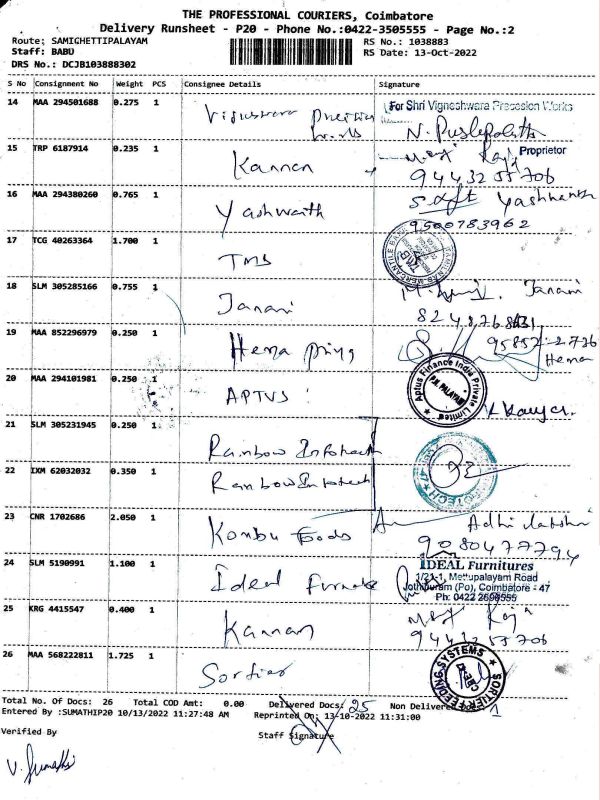 THE PROFESSIONAL COURIERS, Coimbatore
Delivery Runsheet - P20 - Phone No.:0422-3505555 - Page No.:2
Route: SAMIGHETTIPALAYAM RS No.: 1038883
Staff: BABU RS Date: 13-Oct-2022
DRS No.: DCJB103888302
S No Consignment No Weight PCS Consignee Details Signature
14 MAA 294501688 0.275 1 For Shri Vigneshwara Precesion Works
Proprietor
15 TRP 6187914 0.235 1 Kannan Raja
9443255706
16 MAA 294380260 0.765 1 Yashwanth Yashwanth
9500783962
17 TCG 40263364 1.700 1 TMB
18 SLM 305285166 0.755 1 Janani Janani
19 MAA 852296979 0.250 1 Hema Hema
20 MAA 294101981 0.250 1 APTUS Aptus Finance India Private Limited
P.N. PALAYAM
21 SLM 305231945 0.250 1 Rainbow Infotech
22 IXM 62032032 0.350 1 Rainbow Infotech
23 CNR 1702686 2.050 1 Kombu Foods Adhi lakshmi
9080477794
24 SLM 5190991 1.100 1 Ideal IDEAL Furnitures
1/21-1, Mettupalayam Road
Jothipuram (Po), Coimbatore - 47
Ph: 0422 2696555
25 KRG 4415547 0.400 1 Kannan Raja
9443255706
26 MAA 568222811 1.725 1 Sortier SORTIER FEEDING SYSTEMS
Total No. Of Docs: 26 Total COD Amt: 0.00 Delivered Docs: 25 Non Delivered 1
Entered By :SUMATHIP20 10/13/2022 11:27:48 AM Reprinted On: 13-10-2022 11:31:00
Verified By Staff Signature